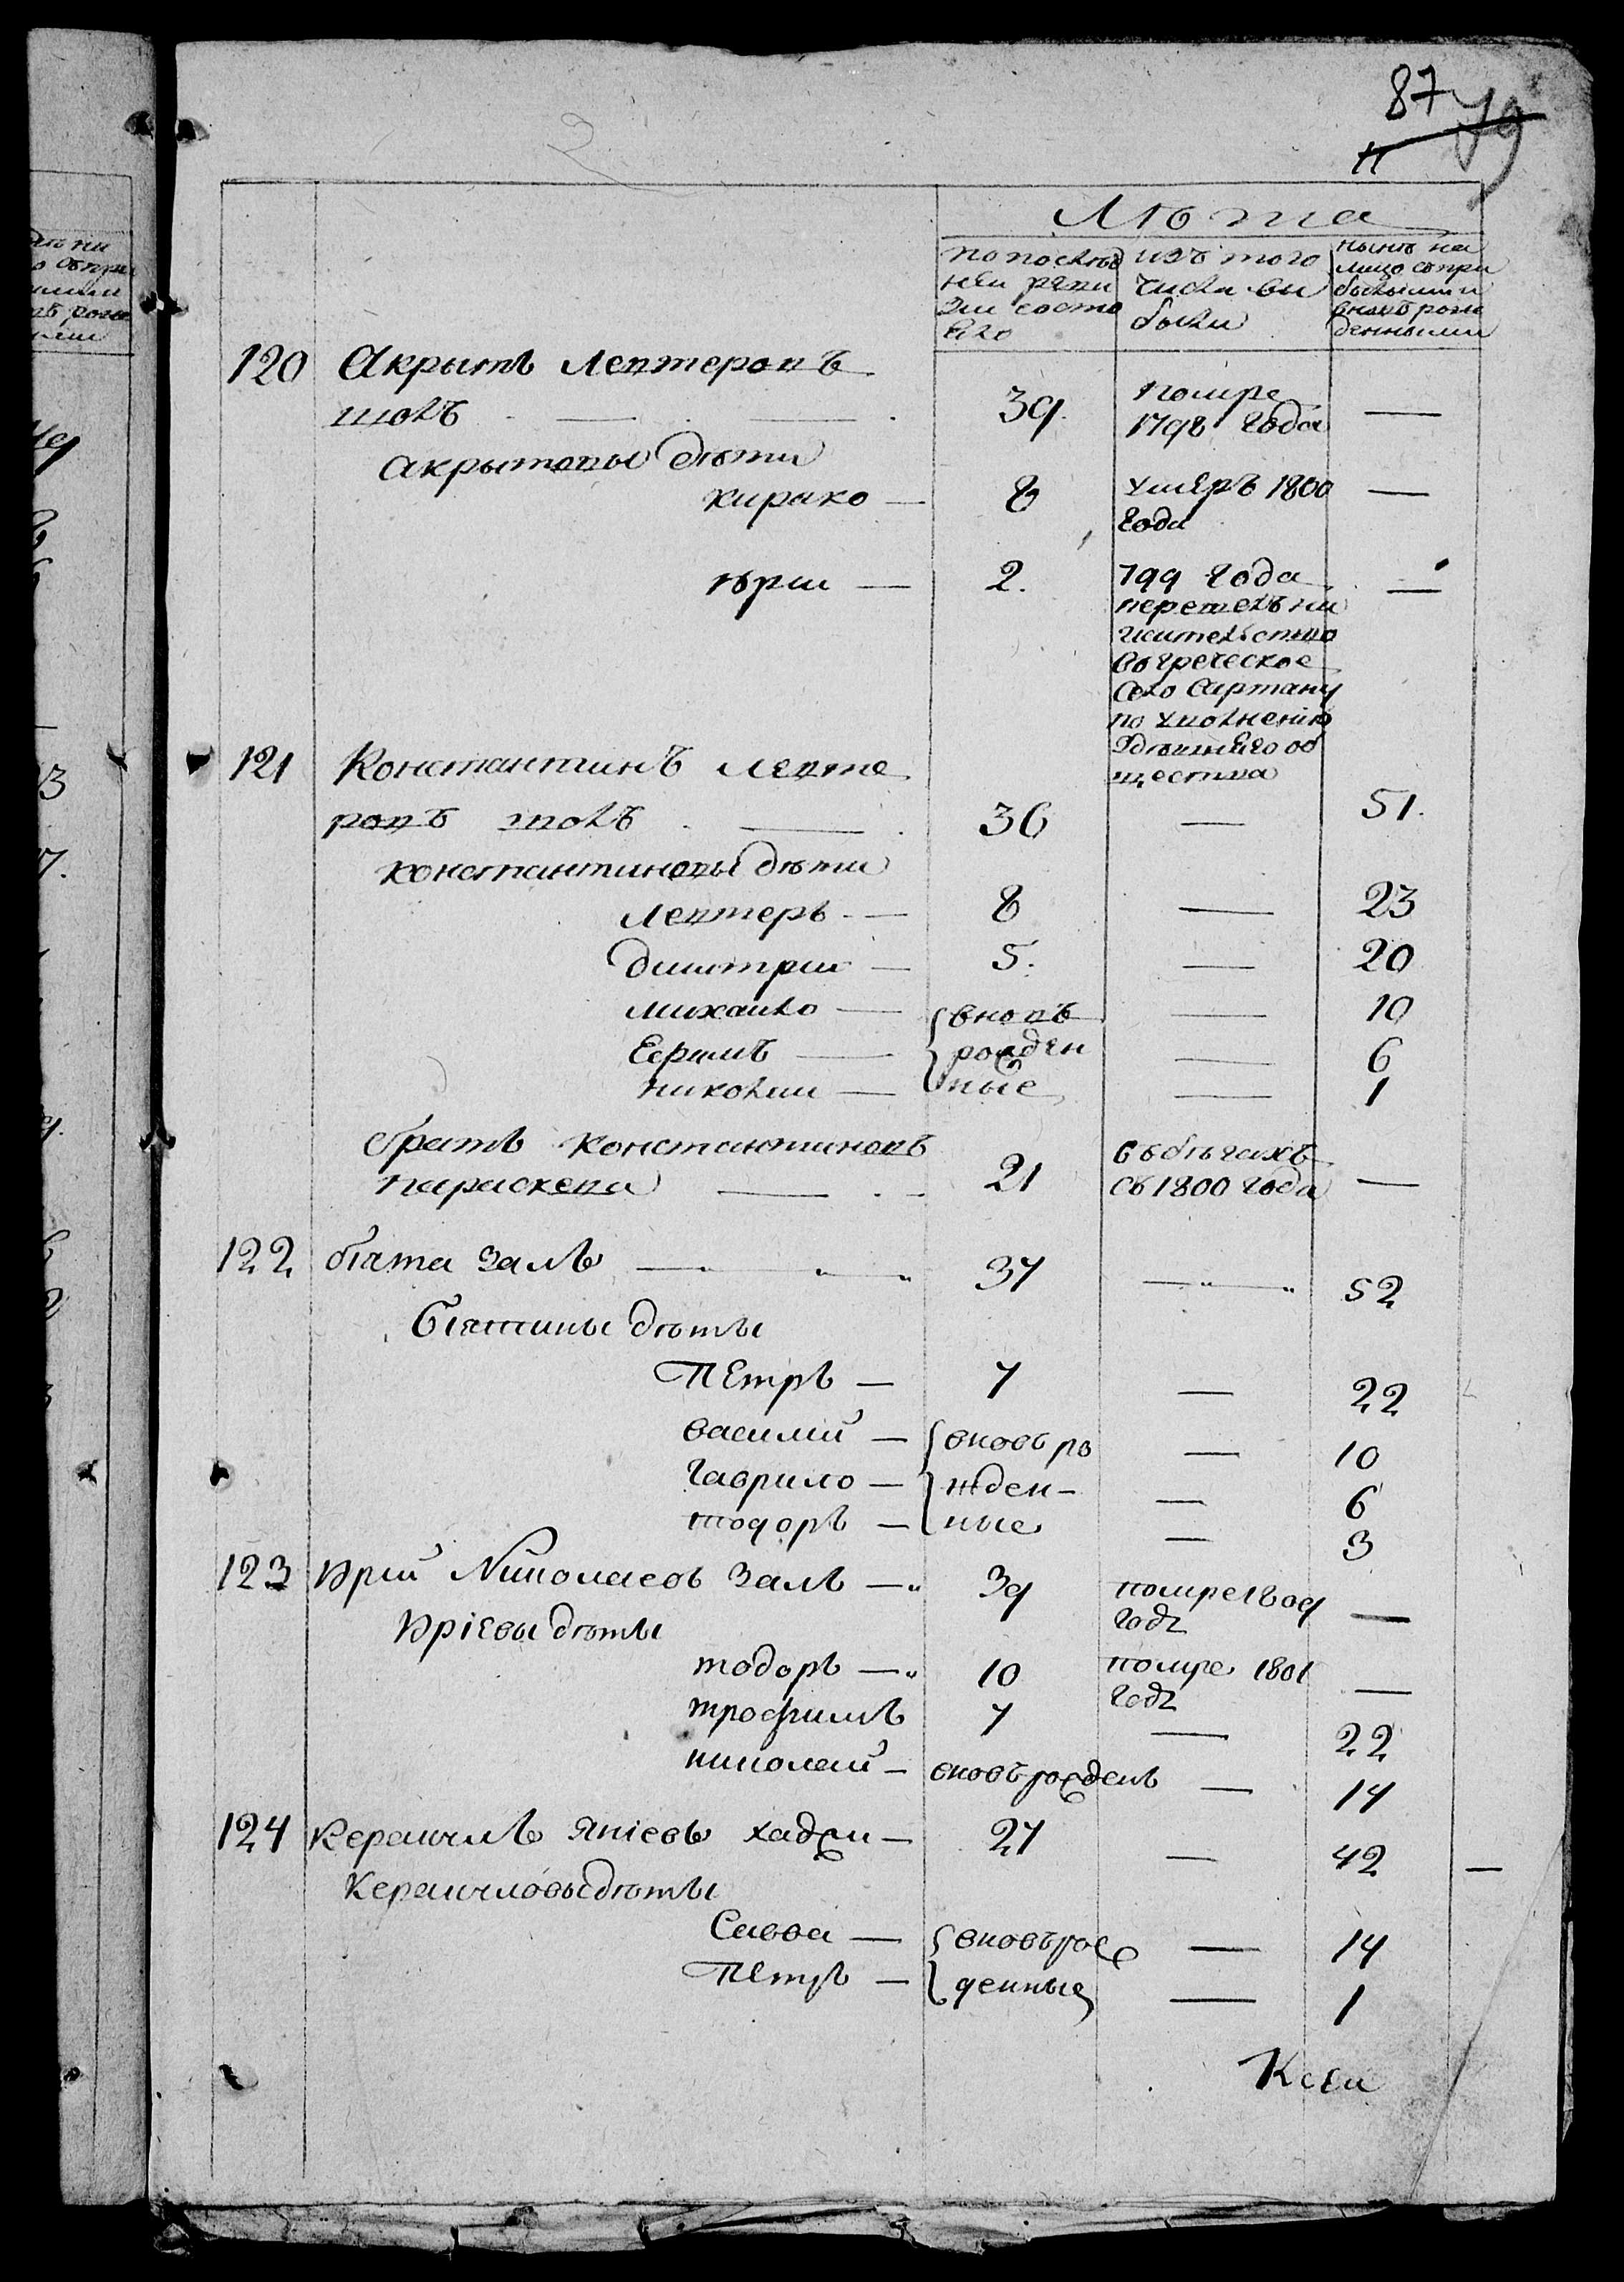 87 79
Лѣта
по послѣд
ней реви
зіи состо
яло
изъ того
числа вы
было
нынѣ на
лицо съ при
былыми и
вновь рож
денными
120 Акрытъ Левтеровъ
шолъ — — 39. помре 1798 года —
Акрытовы дѣти
кирако — 8 умеръ 1800 года —
юрии — 2. 799 года
перешелъ на
жительство
въ греческое
село Сартану
по уволнению
здешняго об
щества —
121 Константинъ левте
ровъ шолъ — 36 — 51.
константиновы дѣти
левтеръ — 8 — 23
димитрии — 5. — 20
михаило — вновь — 10
Ефимъ — рожден — 6
николаи — ные — 1
братъ константиновъ
параскева — 21 въ бѣгахъ съ 1800 года —
122 бѣята залъ — 37 — 52
Бѣятины дѣты
Петръ — 7 — 22
василий — вновь ро — 10
гаврило — жден- — 6
тодоръ — ные — 3
123 юрий Николаевъ залъ — 39 помре 1809 годᲂ —
юріевы дѣты
тодоръ — 10 помре 1801 года —
трофимъ 7 — 22
николай — вновь рожденъ — 14
124 Кераичлъ яніевъ хаджи — 27 — 42 —
Кераичловы дѣты
Савва — вновь рож — 14
Петръ — денные — 1